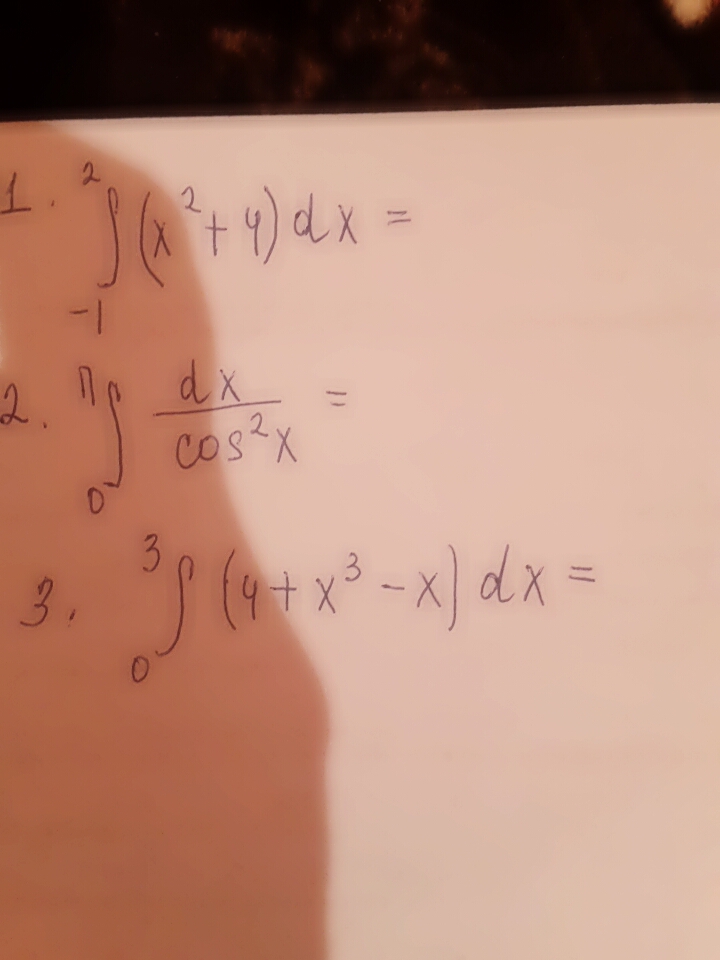 1. ∫₋₁² (x² + 4) dx =
2. ∫₀^π dx / cos²x =
3. ∫₀³ (4 + x³ - x) dx =